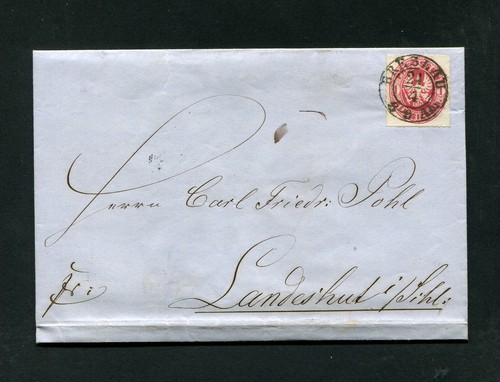 BRESLAU
21
4
Herrn Carl Friedr: Pohl
Fr:
Landeshut i/Schl: